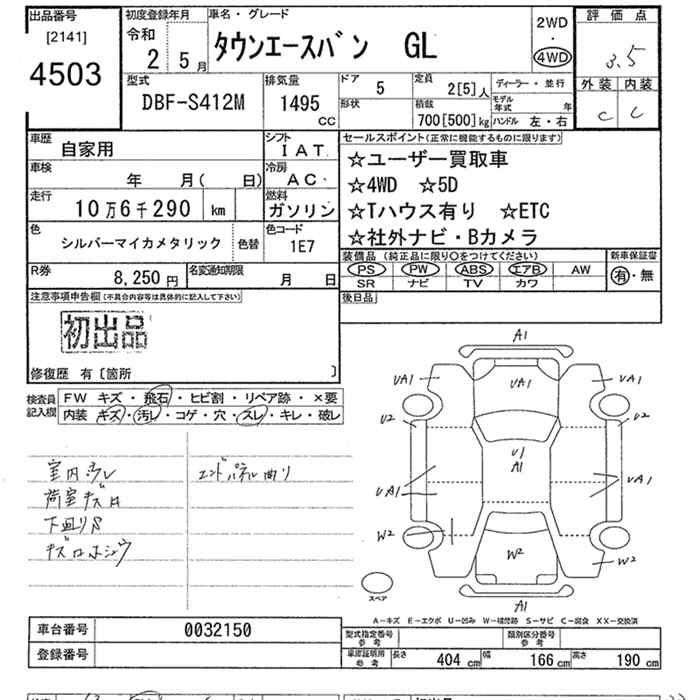 出品番号
[2141]
4503
初度登録年月
令和
2 5月
車名・グレード
タウンエースバン GL
2WD
・
4WD
評価点
3.5
外装 内装
C C
型式
DBF-S412M
排気量
1495
cc
ドア 5
形状
定員 2[5]人
積載 700[500]kg
ディーラー・並行
モデル年式 年
ハンドル 左・右
車歴
自家用
シフト
IAT
車検
年 月( 日)
冷房
AC
走行
10万6千290 km
燃料
ガソリン
色
シルバーマイカメタリック 色替
色コード
1E7
R券
8,250円
名変通知期限
月 日
セールスポイント(正常に機能するものに限ります)
☆ユーザー買取車
☆4WD ☆5D
☆Tハウス有り ☆ETC
☆社外ナビ・Bカメラ
装備品(純正品に限り○をつけてください)
PS PW ABS エアB AW
SR ナビ TV カワ
新車保証書
有・無
後日品
注意事項申告欄(不具合内容等は具体的に記入して下さい)
初出品
修復歴 有〔箇所 〕
検査員記入欄
FW キズ・飛石・ヒビ割・リペア跡・×要
内装 キズ・汚レ・コゲ・穴・スレ・キレ・破レ
室内汚レ
荷室キズロ
下廻りS
エンドパネル曲り
A1
UA1
UA1
UA1
U2
U2
U1
A1
UA1
UA1
W2
W2
W2
A1
スペア
A-キズ E-エクボ U-凹み W-補修跡 S-サビ C-腐食 XX-交換済
車台番号 0032150
登録番号
型式指定番号
参考
類別区分番号
参考
車庫証明用
参考
長さ 404cm 幅 166cm 高さ 190cm